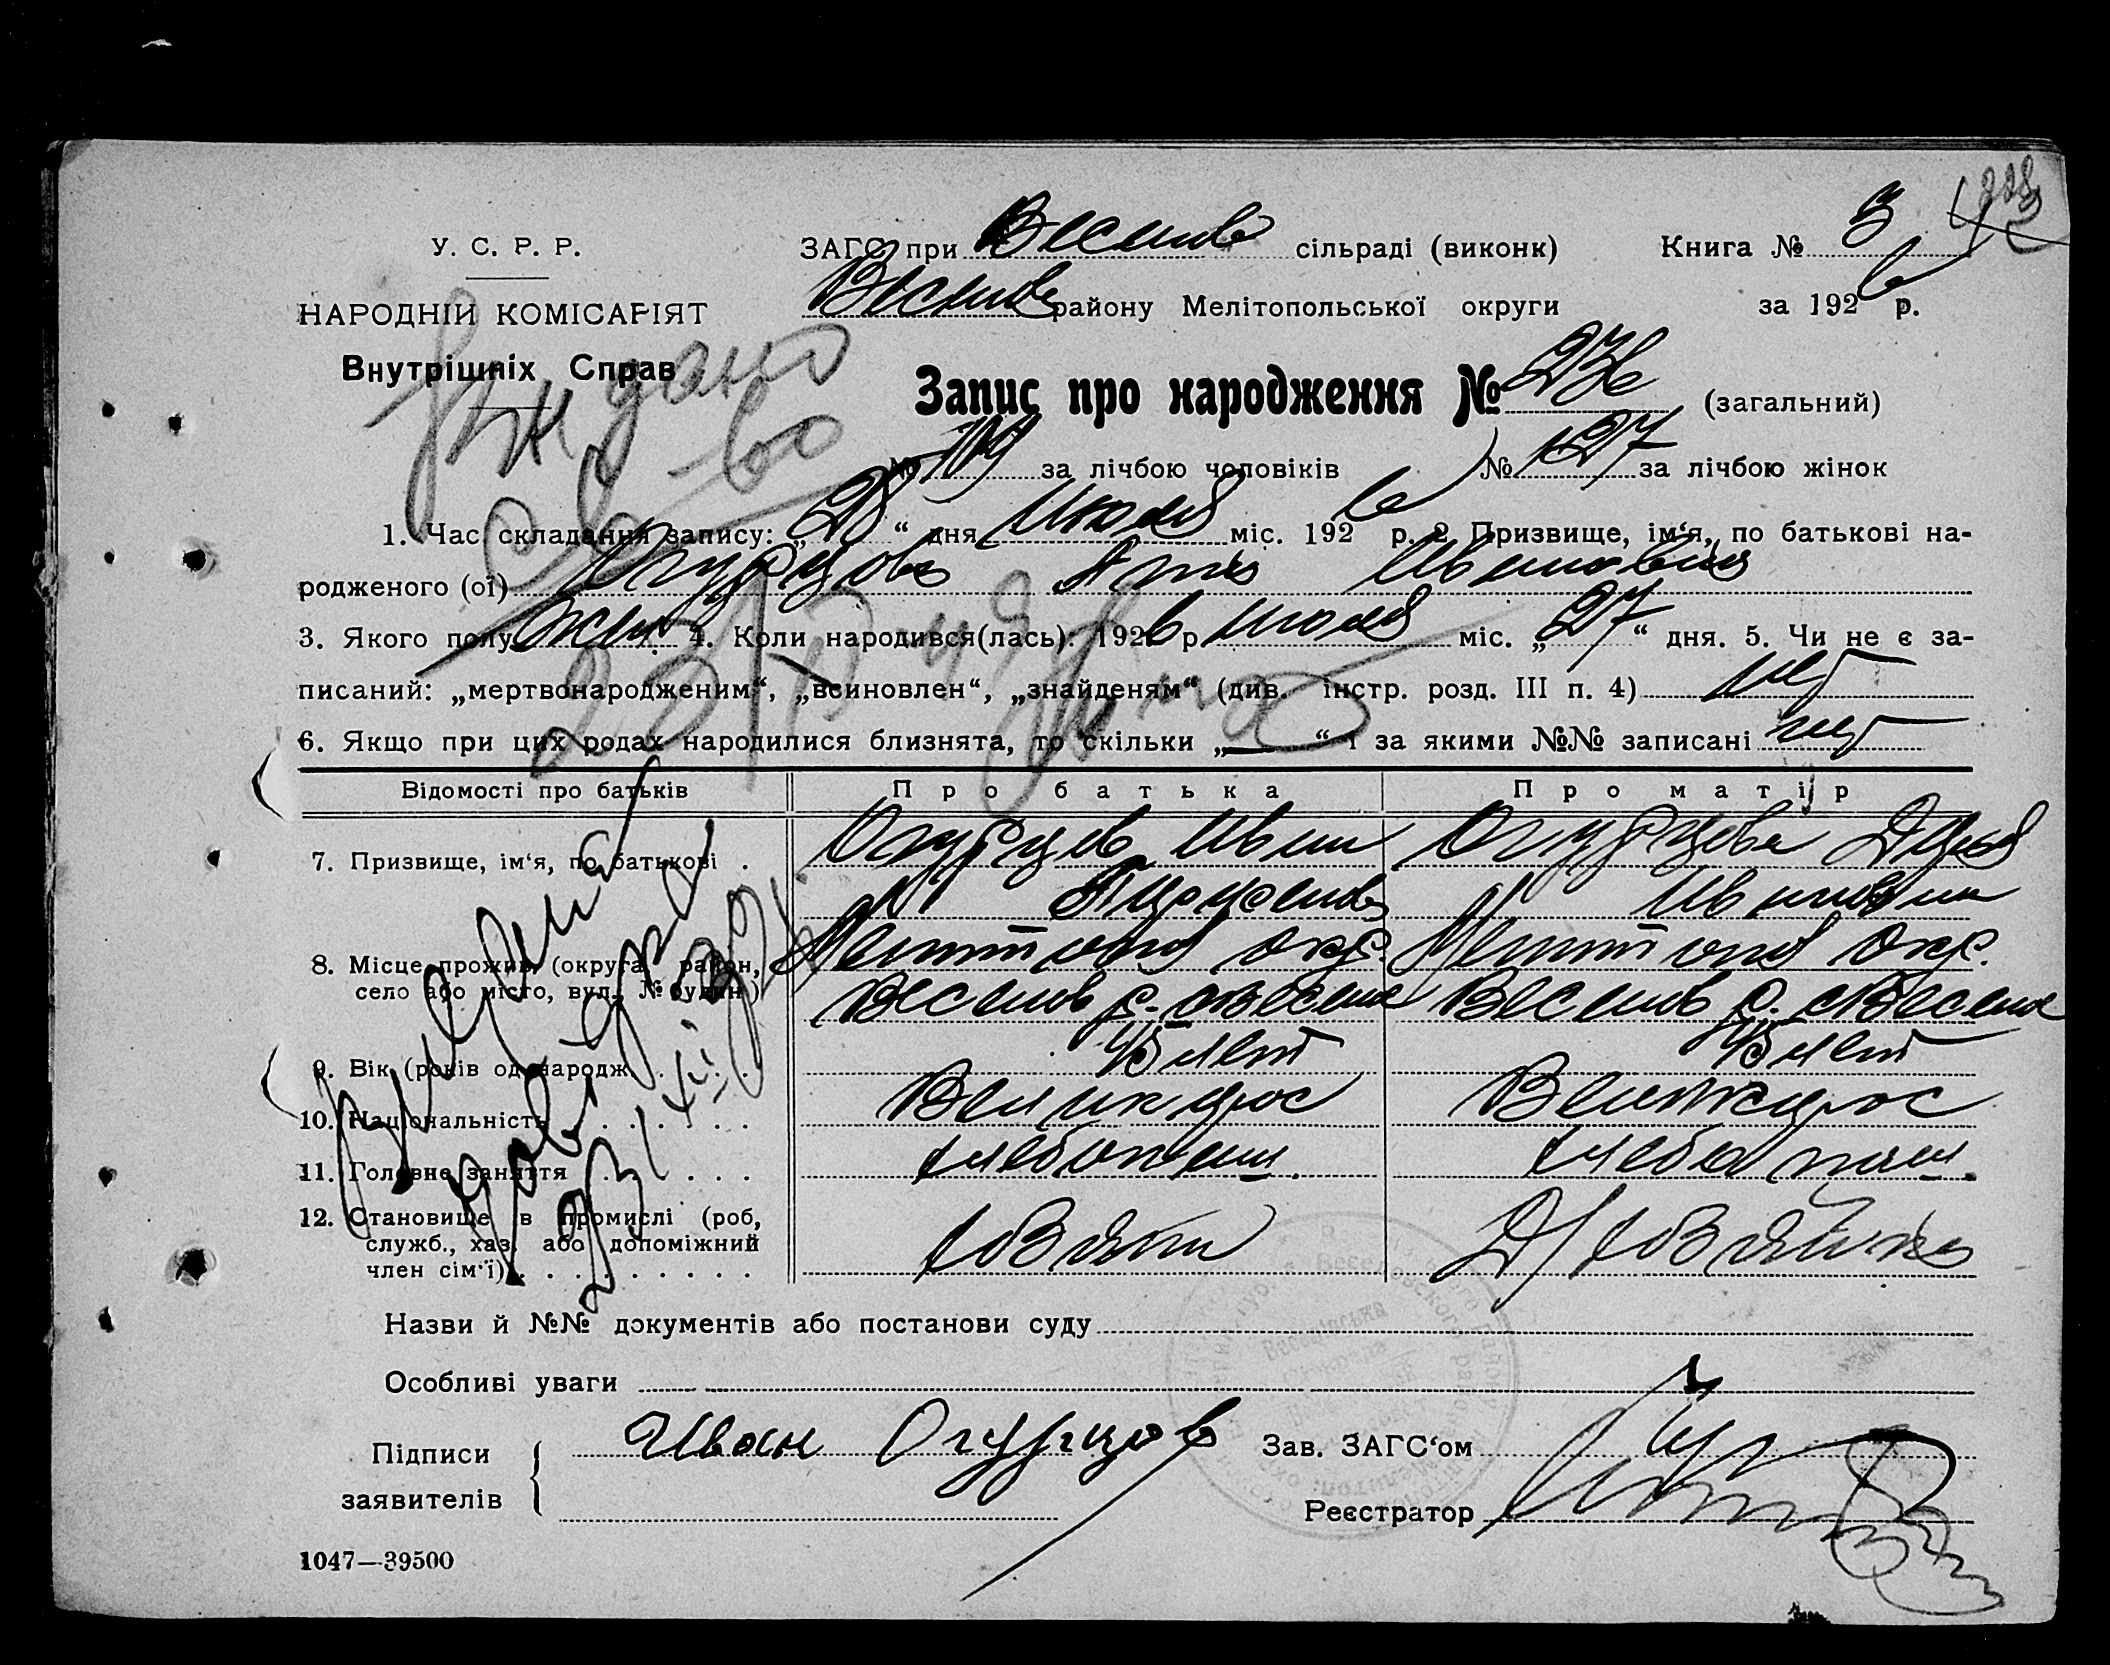 У. С. Р. Р.
НАРОДНІЙ КОМІСАРІЯТ
Внутрішніх Справ
ЗАГС при Веселов сільраді (виконк) Книга № 3
Веселов району Мелітопольської округи за 1926 р.
Запис про народження № 236 (загальний)
№ 109 за лічбою чоловіків № 127 за лічбою жінок
1. Час складання запису: „ “ дня Июля міс. 1926 р. 2. Призвище, ім‘я, по батькові на-
родженого (ої) Огурцова Ивановна
3. Якого полу жен. 4. Коли народився(лась): 1926 р. июля міс. „27“ дня. 5. Чи не є за-
писаний: „мертвонародженим“, „всиновлен“, „знайденям“ (див. інстр. розд. III п. 4) нет
6. Якщо при цих родах народилися близнята, то скільки „—“ і за якими №№ записані нет
Відомості про батьків Про батька Про матір
7. Призвище, ім‘я, по батькові . Огурцов Иван Огурцова
Ивановна
8. Місце прожив. (округа, район, Мелитопол окр. Мелитопол окр.
село або місто, вул., № будин.) Веселов р. с. Веселое Веселов р. с. Веселое
9. Вік (років од народж. . . . 45 лет 45 лет
10. Національність . . . . . . Великорос Великорос
11. Головне заняття . . . . . хлебопаш. хлебопаш.
12. Становище в промислі (роб,
служб., хаз. або допоміжний
член сім‘ї) . . . . . . . . . хозяин Д/хозяйка
Назви й №№ документів або постанови суду
Особливі уваги
Підписи Иван Огурцов Зав. ЗАГС‘ом
заявителів Реєстратор
1047—39500